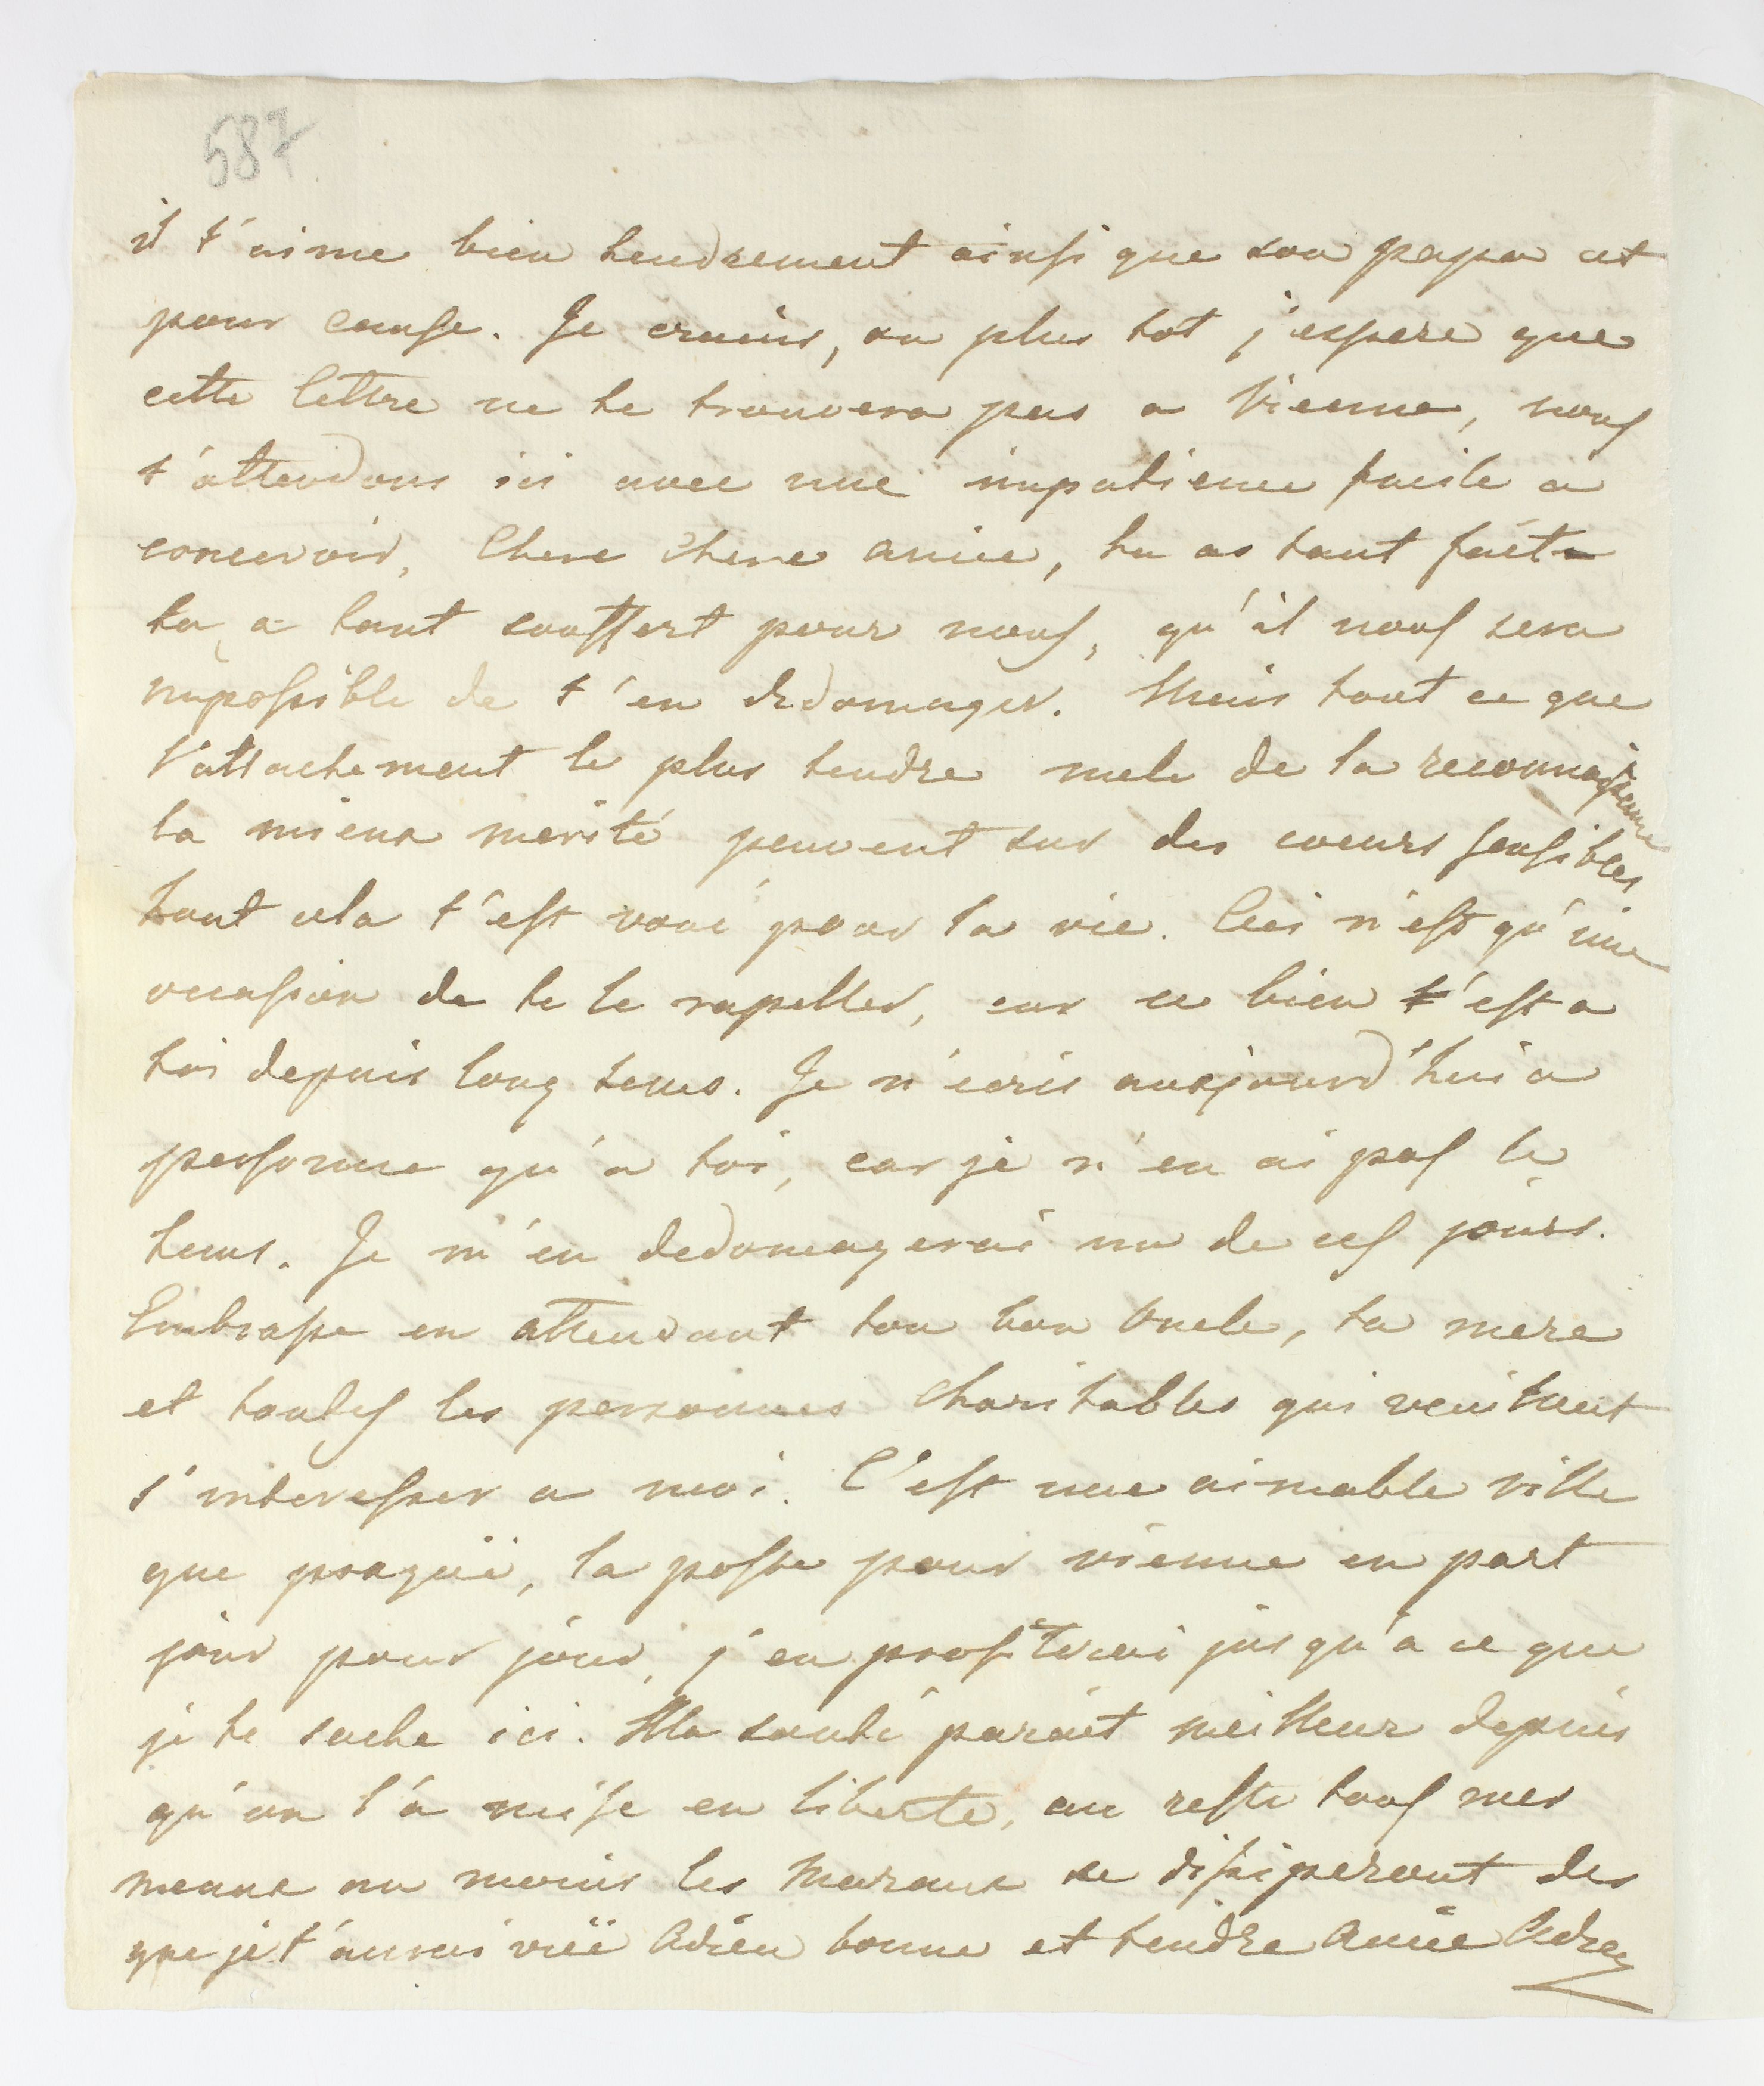 587
il t'aime bien tendrement ainsi que son papa et
pour cause. Je crains, ou plus tot j'espere que
cette lettre ne te trouvera pas a Vienne, nous
t'attendons ici avec une impatience facile a
concevoir, Chere chere amie, tu as tant fait
tu a tant souffert pour nous, qu'il nous sera
impossible de t'en dedomager. Mais tout ce que
l'attachement le plus tendre mele de la reconnaissance
la mieux merité peuvent sur des coeurs sensibles
tout cela t'est voué pour la vie. Ceci n'est qu'une
occassion de te le rapeller, car ce bien t'est a
toi depuis long tems. Je n'écris aujourd'hui a
personne qu'a toi, car je n'en ai pas le
tems. Je m'en dedomagerai un de ces jours.
Embrasse en attendant ton bon Oncle, ta mere
et toutes les personnes charitables qui veuillent
s'interesser a moi. C'est une aimable ville
que prague, la poste pour vienne en part
jour pour jour, j'en profiterai jusqu'a ce que
je te sache ici. Ma santé parait meilleur depuis
qu'on l'a mise en liberte, au reste tous mes
meaux au moins les moraux se dissiperont des
que je t'aurai vuë Adieu bonne et tendre Amie Adieu